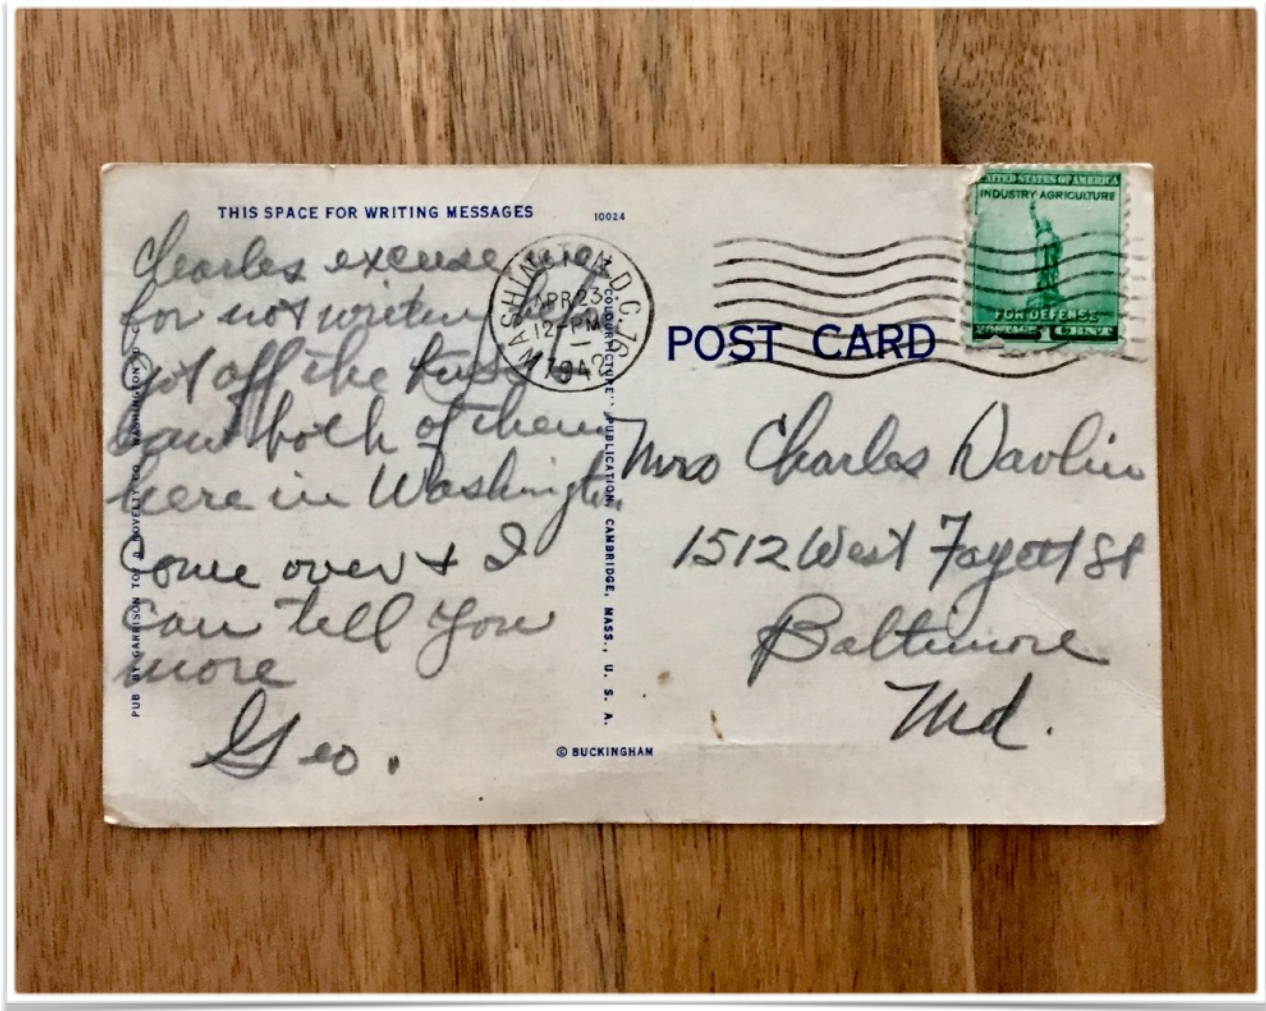 THIS SPACE FOR WRITING MESSAGES
10024
Charles excuse me
for not writing before
Got off the
both of them
here in Washington
Come over & I
can tell you
more
Geo.
PUB BY GARRISON TOY & NOVELTY CO. WASHINGTON, D.C.
"COLOURPICTURE" PUBLICATION, CAMBRIDGE, MASS., U. S. A.
© BUCKINGHAM
WASHINGTON, D.C. 16
APR 23
12-PM
1942
POST CARD
UNITED STATES OF AMERICA
INDUSTRY AGRICULTURE
FOR DEFENSE
POSTAGE 1 CENT
Mrs Charles Davlin
1512 West Fayett St
Baltimore
Md.